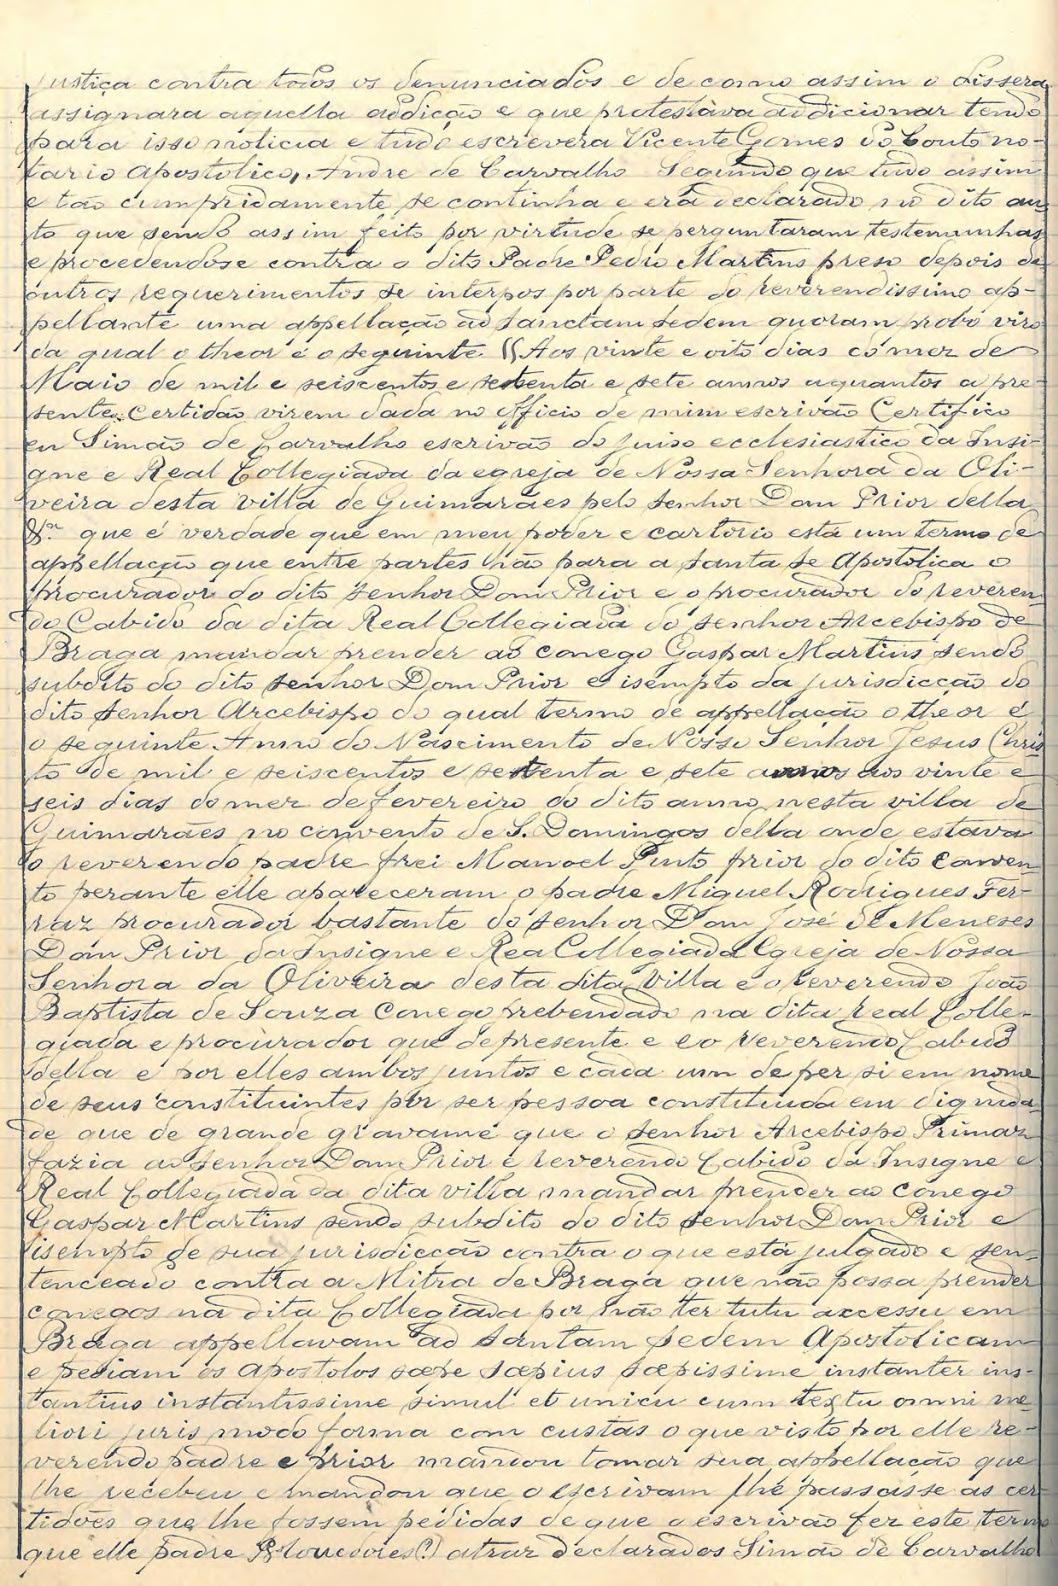 justiça contra todos os denunciados e de como assim o dissera
assignara aquella addicção e que protestava addicionar tendo
para isso noticia e tudo escrevera Vicente Gomes do Couto no-
tario apostolico, Andre de Carvalho Segundo que tudo assim
e tão cumpridamente se continha e era declarado no dito au
to que sendo assim feito por virtude se perguntaram testemunhas
e procedendose contra o dito Padre Pedro Martins preso depois de
outros requerimentos se interpos por parte do reverendissimo ap-
pellante uma appellação ad sanctam sedem quoram probo viro
da qual o theor é o seguinte ((Aos vinte e oito dias do mez de
Maio de mil e seiscentos e setenta e sete annos aquantos a pre-
sente Certidão virem dada no officio de mim escrivão Certifico
eu Simão de Carvalho escrivão do juiso ecclesiastico da Insi-
gne e Real Collegiada da egreja de Nossa Senhora da Oli-
veira desta villa de Guimarães pelo senhor Dom Prior della
&ª que é verdade que em meu poder e cartorio está um termo de
appellação que entre partes são para a santa se Apostolica o
procurador do dito senhor Dom Prior e o procurador do reveren-
do Cabido da dita Real Collegiada do senhor Arcebispo de
Braga mandar prender ao conego Gaspar Martins sendo
subdito do dito senhor Dom Prior e isempto da jurisdicção do
dito senhor Arcebispo do qual termo de appellação o theor é
o seguinte Anno do Nascimento de Nosso Senhor Jesus Chris
to de mil e seiscentos e setenta e sete annos aos vinte e
seis dias do mez de fevereiro do dito anno nesta villa de
Guimarães no convento de S. Domingos della onde estava
o reverendo padre frei Manoel Pinto prior do dito conven-
to perante elle apareceram o padre Miguel Rodrigues Fer-
raz procurador bastante do senhor Dom José de Meneses
Dom Prior da Insigne e Rea Collegiada Egreja de Nossa
Senhora da Oliveira desta dita villa e o reverendo João
Baptista de Souza Conego prebendado na dita real Colle-
giada e procurador que de presente e eo reverendo Cabido
della e por elles ambos juntos e cada um de per si em nome
de seus constituintes por ser pessoa constituida em dignida
de que de grande gravame que o senhor Arcebispo Primaz
fazia ao senhor Dom Prior e reverendo Cabido da Insigne e
Real Collegiada da dita villa mandar prender ao conego
Gaspar Martins sendo subdito do dito senhor Dom Prior e
isempto de sua jurisdicção contra o que está julgado e sen-
tenceado contra a Mitra de Braga que não possa prender
conegos na dita Collegiada por não ter tutu accessu em
Braga appellavam ad santam sedem Apostolicam
e pediam os apostolos sæpe sæpius sæpissime instanter ins-
tantius instantissime simul et unicu cum textu omni me
liori juris modo forma com custas o que visto por elle re-
verendo padre e prior mandou tomar sua appellação que
lhe recebeu e mandou que o escrivam lhe passasse as cer
tidões que lhe fossem pedidas de que o escrivão fez este termo
que elle padre (?) atraz declarados Simão de Carvalho